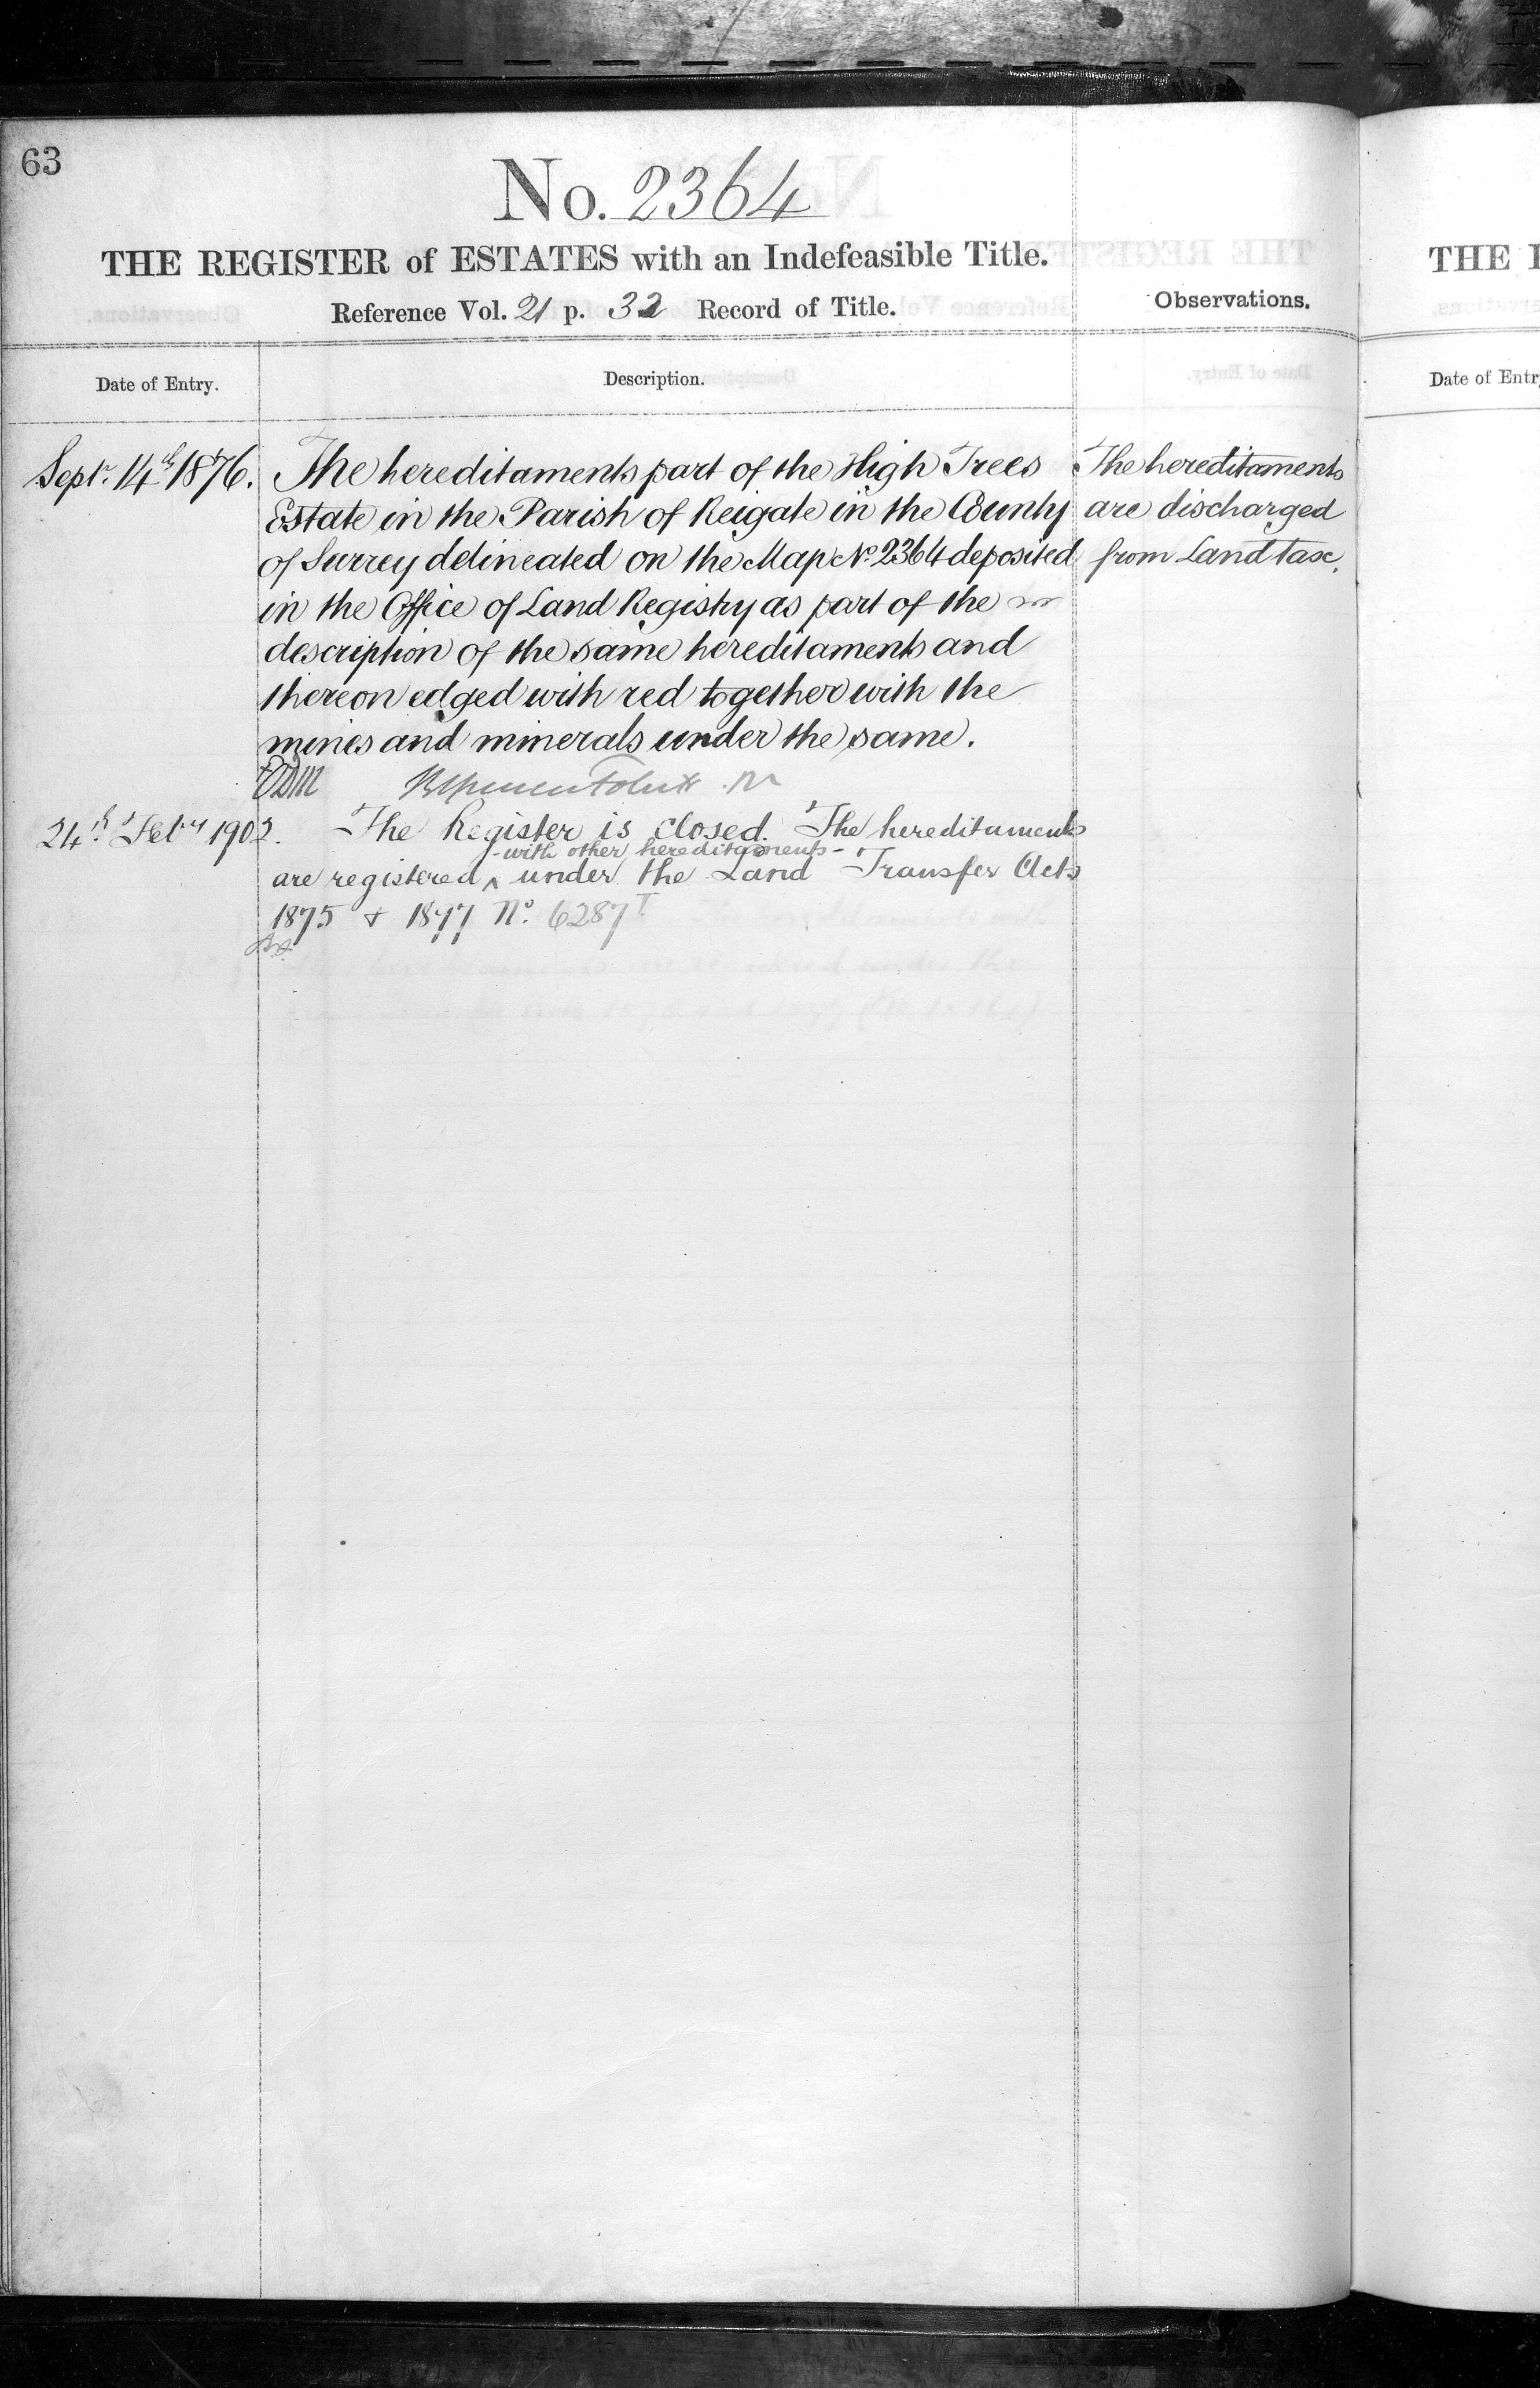 63
No. 2364
THE REGISTER of ESTATES with an Indefeasible Title.
Reference Vol. 21 p. 32 Record of Title.
Observations.
Date of Entry.
Description.
Sept. 14th 1876.
The hereditaments part of the High Trees
Estate in the Parish of Reigate in the County
of Surrey delineated on the Map No. 2364 deposited
in the Office of Land Registry as part of the
description of the same hereditaments and
thereon edged with red together with the
mines and minerals under the same.
The hereditaments
are discharged
from Land tax.
24th Feby 1902.
The Register is closed. The hereditaments
-with other hereditaments-
are registered ^ under the Land Transfer Acts
1875 & 1897 No. 6287
THE
Date of Entr